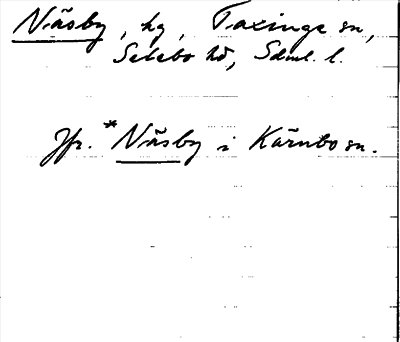 Näsby, hg, Taxinge sn,
Selebo hd, Sdml. l.
Jfr. *Näsby i Kärnbo sn.